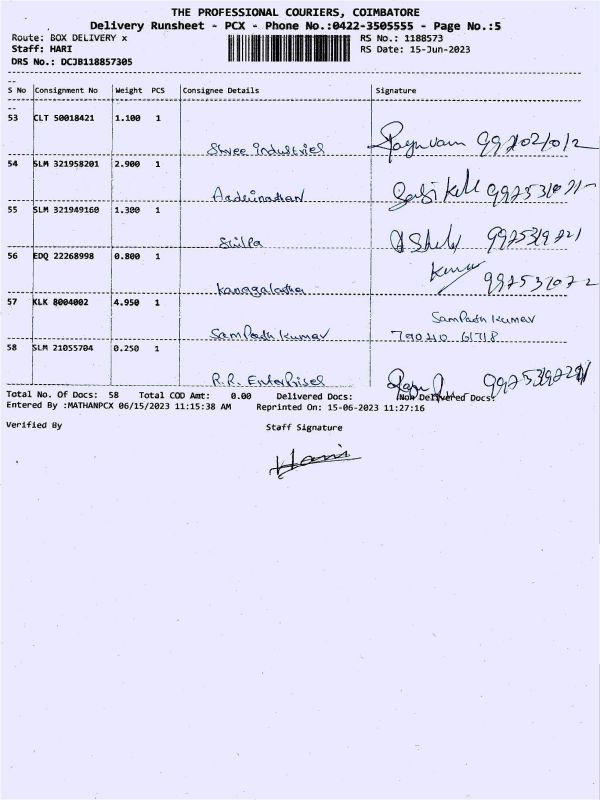 THE PROFESSIONAL COURIERS, COIMBATORE
Delivery Runsheet - PCX - Phone No.:0422-3505555 - Page No.:5
Route: BOX DELIVERY x RS No.: 1188573
Staff: HARI RS Date: 15-Jun-2023
DRS No.: DCJB118857305
S No Consignment No Weight PCS Consignee Details Signature
53 CLT 50018421 1.100 1
Shree Industries
54 SLM 321958201 2.900 1
55 SLM 321949160 1.300 1
Shilpa
56 EDQ 22268998 0.800 1
Kumar
Kanagalatha
57 KLK 8004002 4.950 1
Sampath Kumar
Sampath Kumar 790410 61718
58 SLM 21055704 0.250 1
R.R. Enterprises
Total No. Of Docs: 58 Total COD Amt: 0.00 Delivered Docs: Non Delivered Docs:
Entered By :MATHANPCX 06/15/2023 11:15:38 AM Reprinted On: 15-06-2023 11:27:16
Verified By Staff Signature
Hari